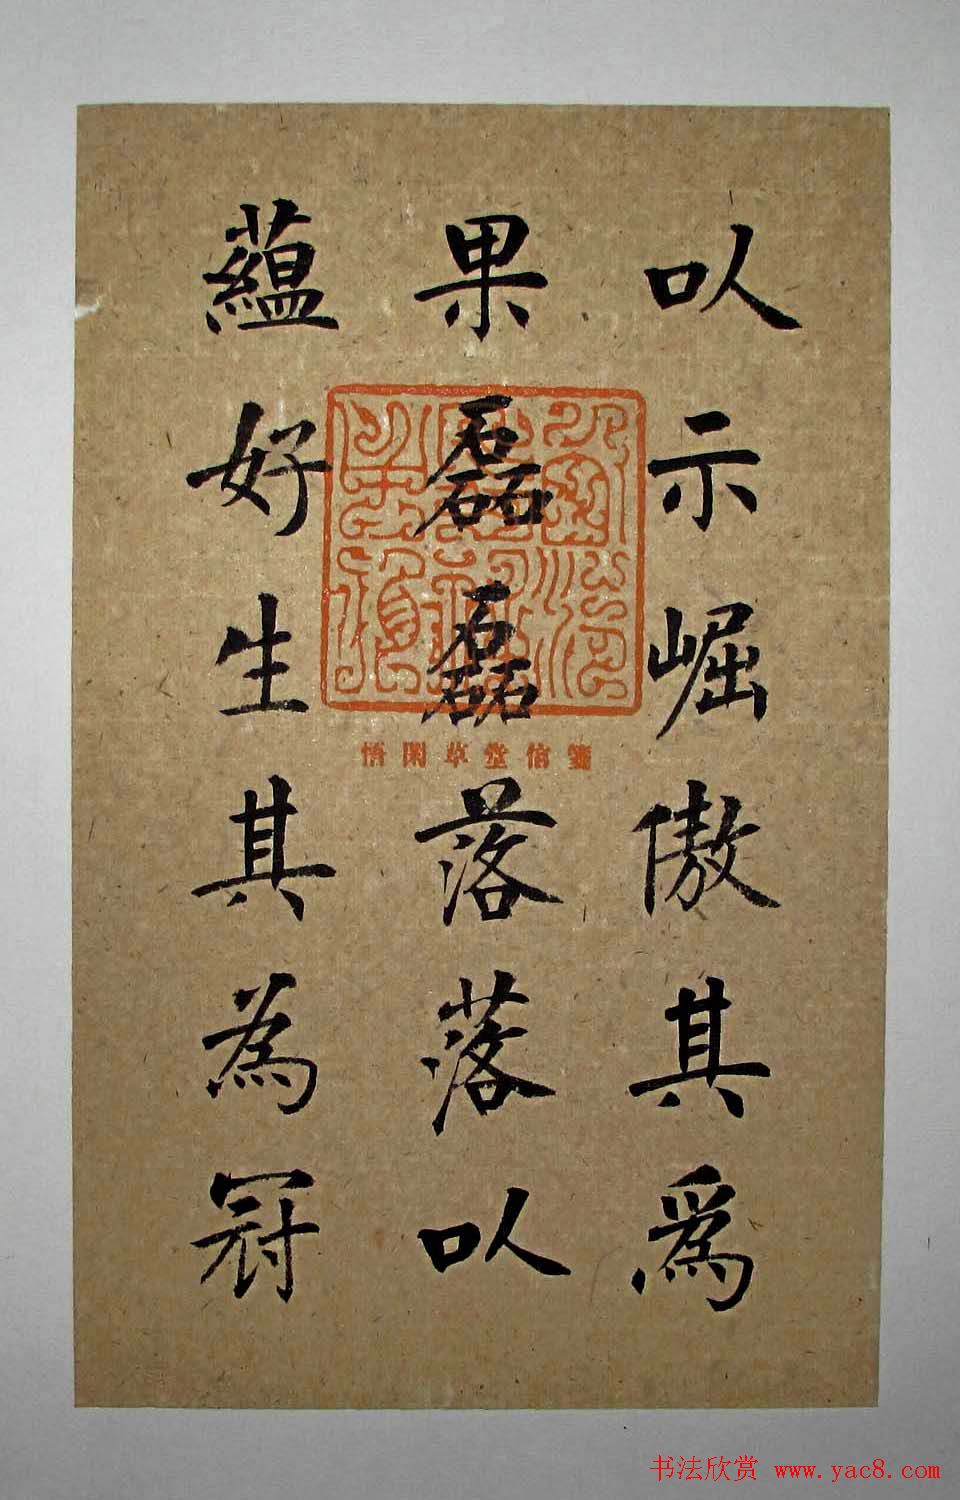 以示崛傲其爲
果磊磊落落以
蘊好生其為冠
悟閑草堂信箋
书法欣赏 www.yac8.com